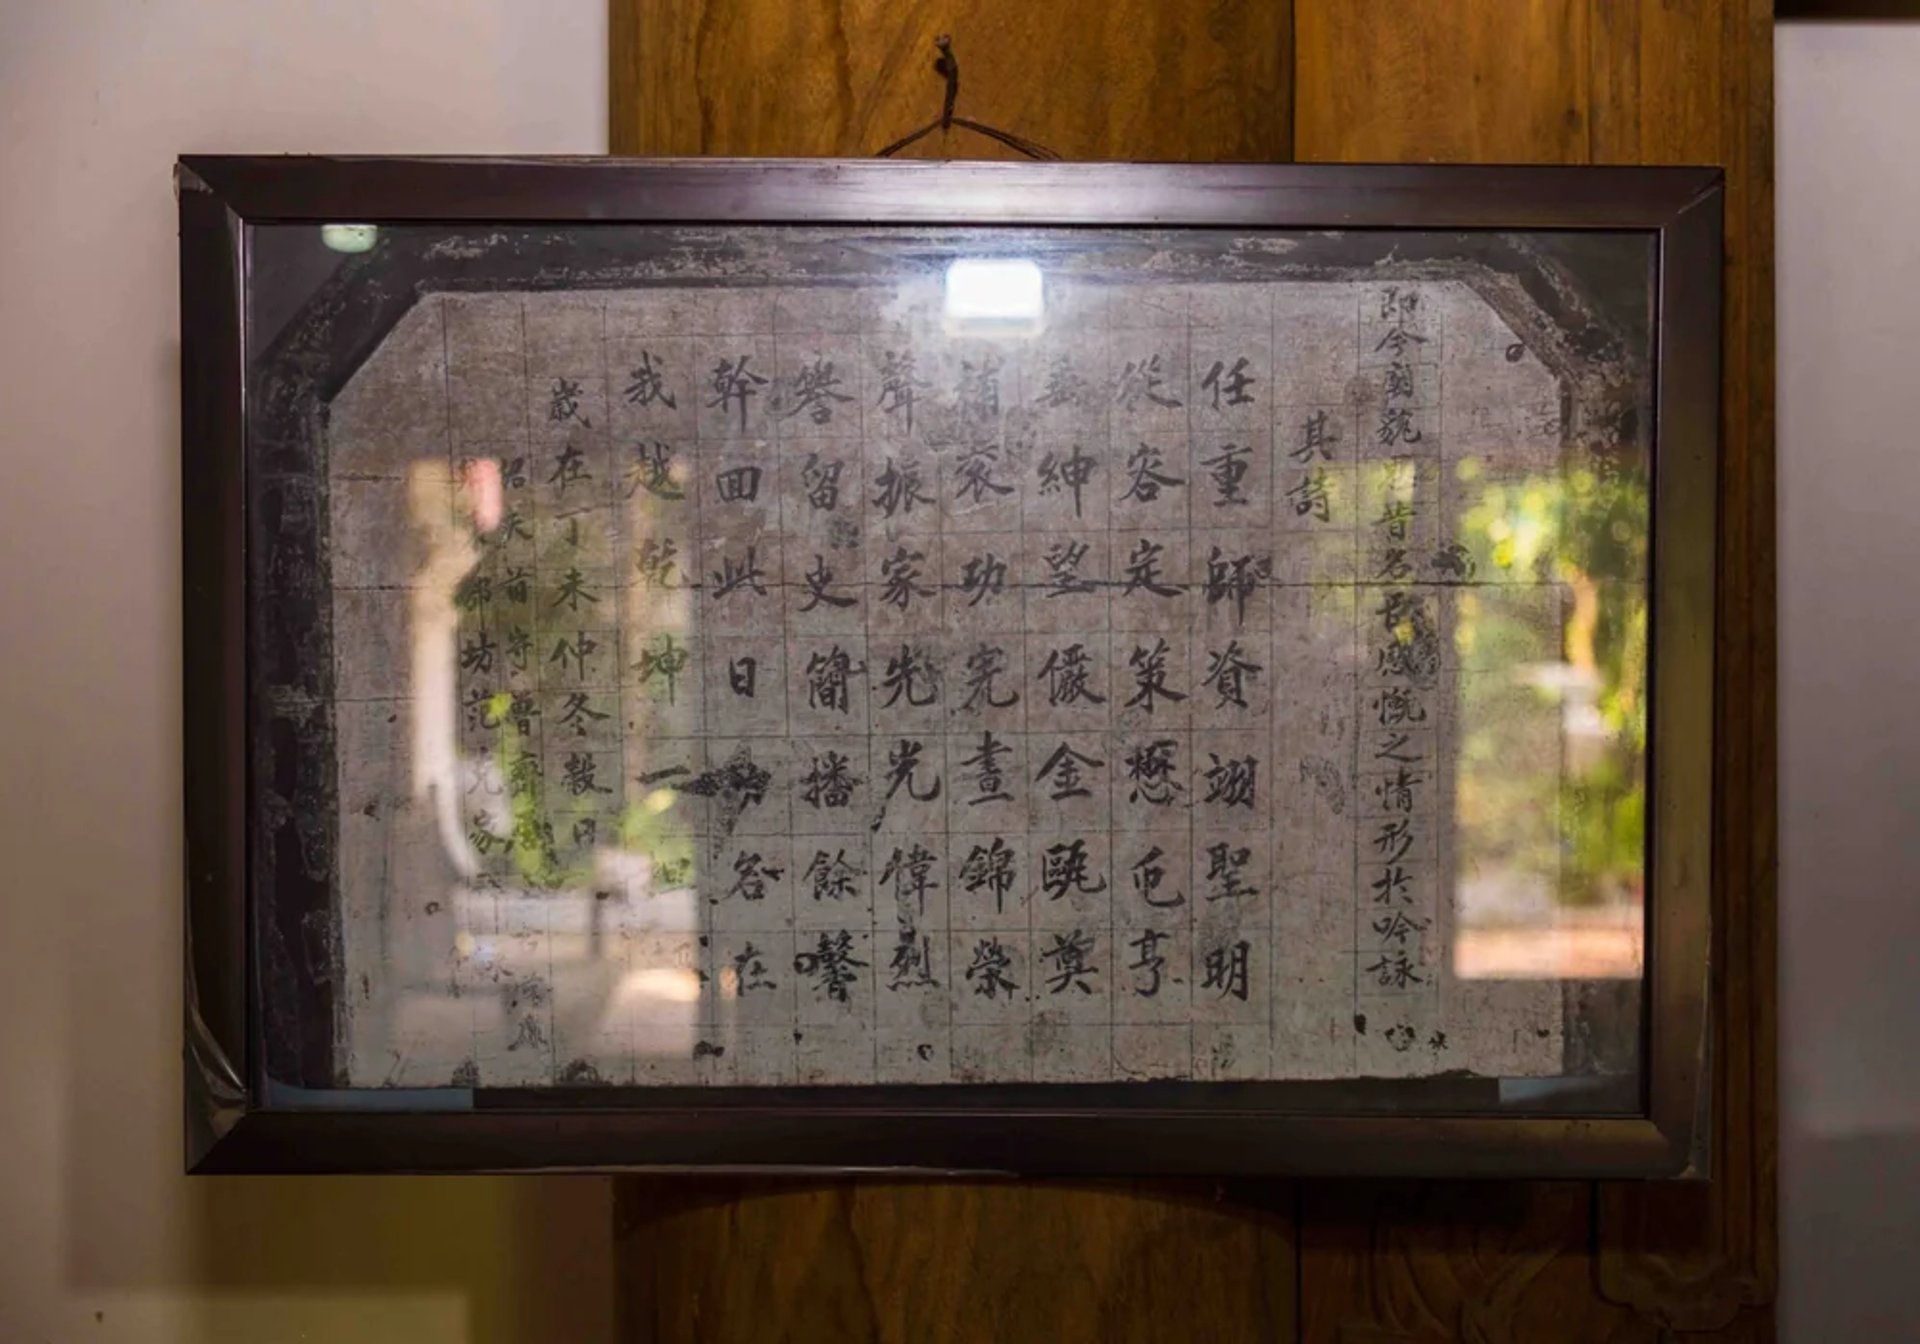 即今廟貌思昔名臣感慨之情形於吟詠
其詩
任重師資翊聖明
從容定策懋屯亨
垂紳望儼金甌奠
補袞功完晝錦榮
聲振家先光偉烈
譽留史簡播餘馨
幹回此日名在
我越乾坤一
歲在丁未仲冬穀日
天首守魯齋
坊范家